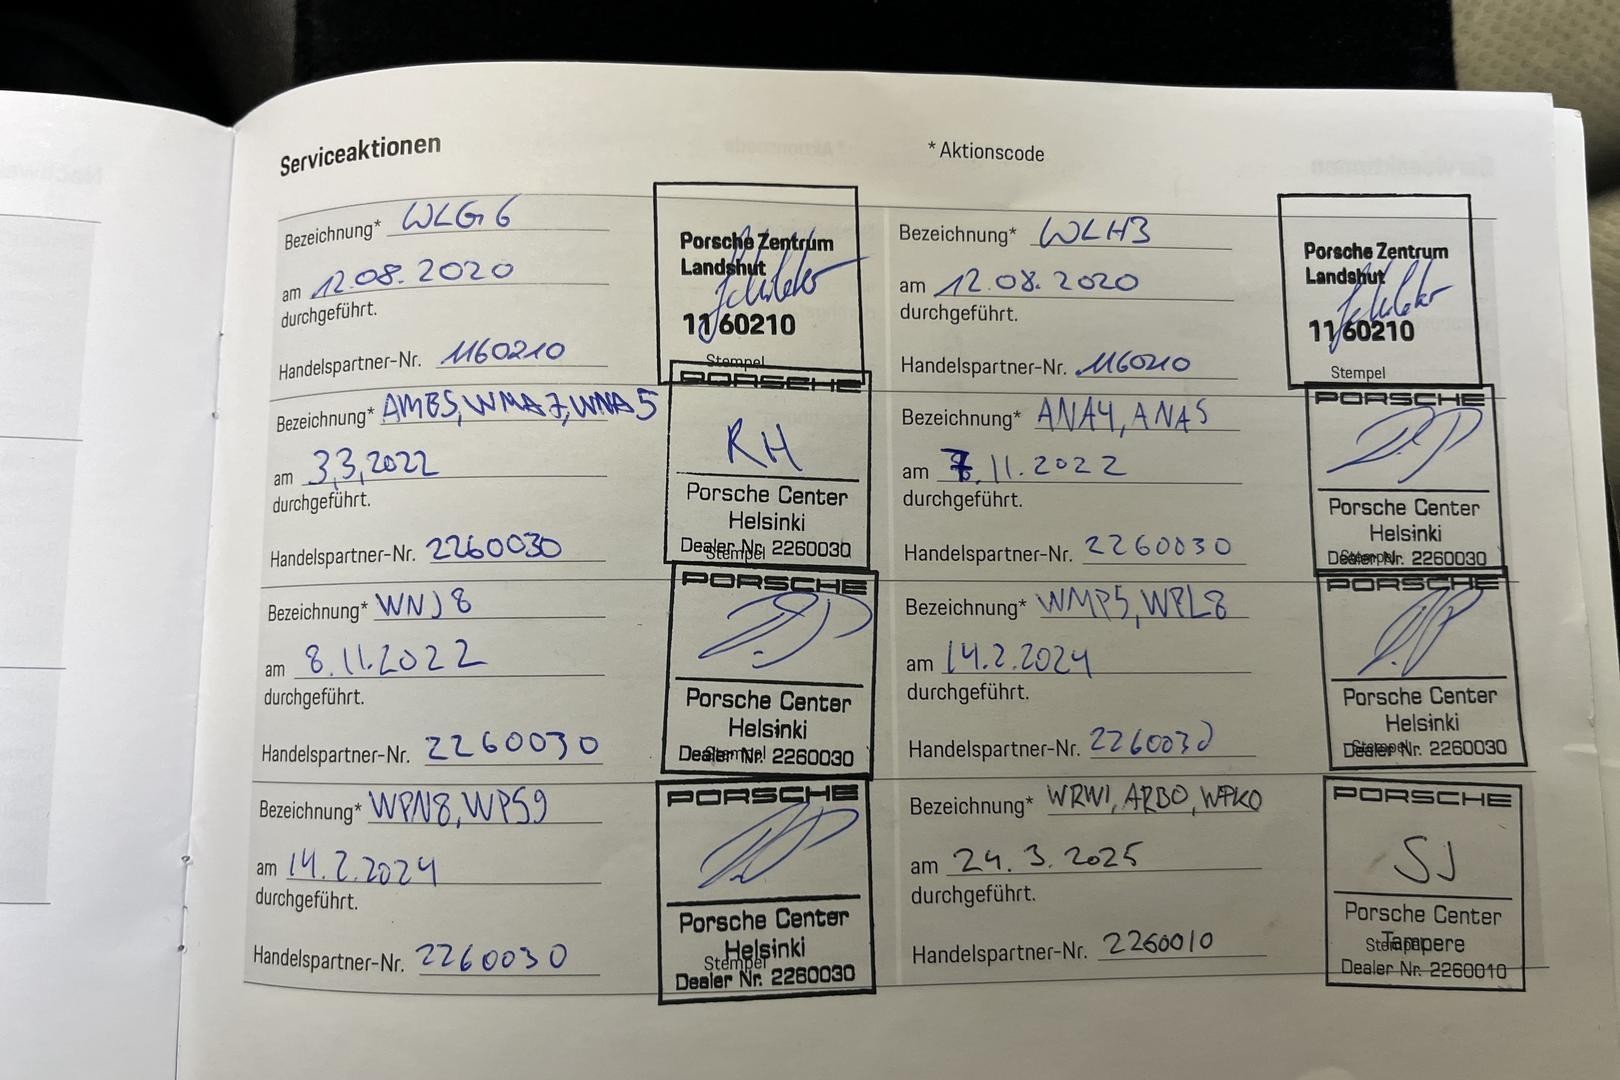 Serviceaktionen
* Aktionscode
Bezeichnung* WLG6
am 12.08.2020
durchgeführt.
Handelspartner-Nr. 1160210
Porsche Zentrum
Landshut
11/60210
Stempel
Bezeichnung* WLH3
am 12.08.2020
durchgeführt.
Handelspartner-Nr. 1160210
Porsche Zentrum
Landshut
11/60210
Stempel
Bezeichnung* AMB5, WMA7, WNA5
am 3,3,2022
durchgeführt.
Handelspartner-Nr. 2260030
PORSCHE
RH
Porsche Center
Helsinki
Dealer Nr. 2260030
Stempel
Bezeichnung* ANA4, ANA5
am 7.11.2022
durchgeführt.
Handelspartner-Nr. 2260030
PORSCHE
Porsche Center
Helsinki
Dealer Nr. 2260030
Stempel
Bezeichnung* WNJ8
am 8.11.2022
durchgeführt.
Handelspartner-Nr. 2260030
PORSCHE
Porsche Center
Helsinki
Dealer Nr. 2260030
Stempel
Bezeichnung* WMP5, WPL8
am 14.2.2024
durchgeführt.
Handelspartner-Nr. 2260030
PORSCHE
Porsche Center
Helsinki
Dealer Nr. 2260030
Stempel
Bezeichnung* WPN8, WPS9
am 14.2.2024
durchgeführt.
Handelspartner-Nr. 2260030
PORSCHE
Porsche Center
Helsinki
Stempel
Dealer Nr. 2260030
Bezeichnung* WRW1, ARB0, WPK0
am 24.3.2025
durchgeführt.
Handelspartner-Nr. 2260010
PORSCHE
SJ
Porsche Center
Tampere
Stempel
Dealer Nr. 2260010